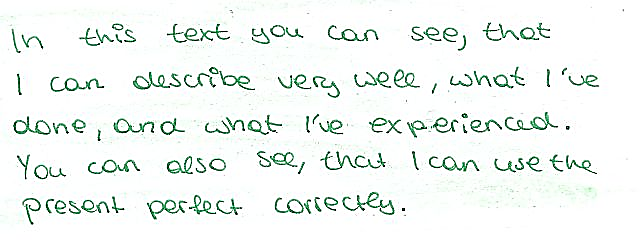 In this text you can see, that
I can describe very well, what I've
done, and what I've experienced.
You can also see, that I can use the
present perfect correctly.